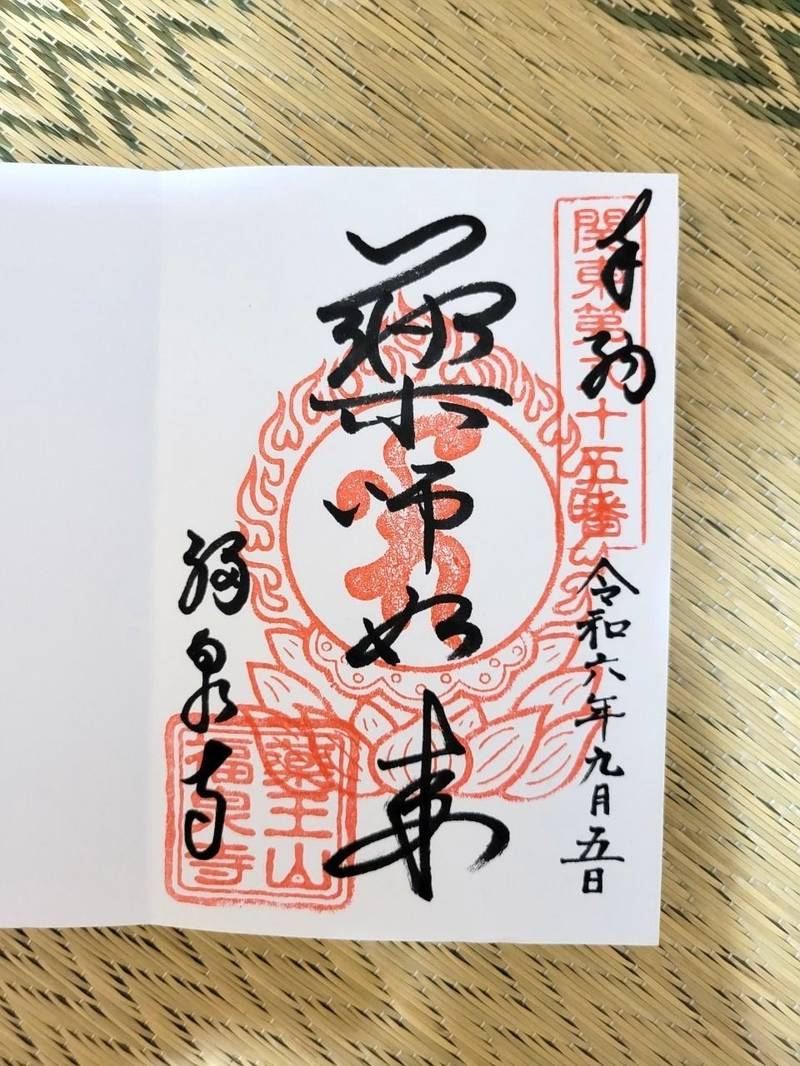 奉拝
関東第十五番
令和六年九月五日
薬師如来
福泉寺
薬王山
福泉寺